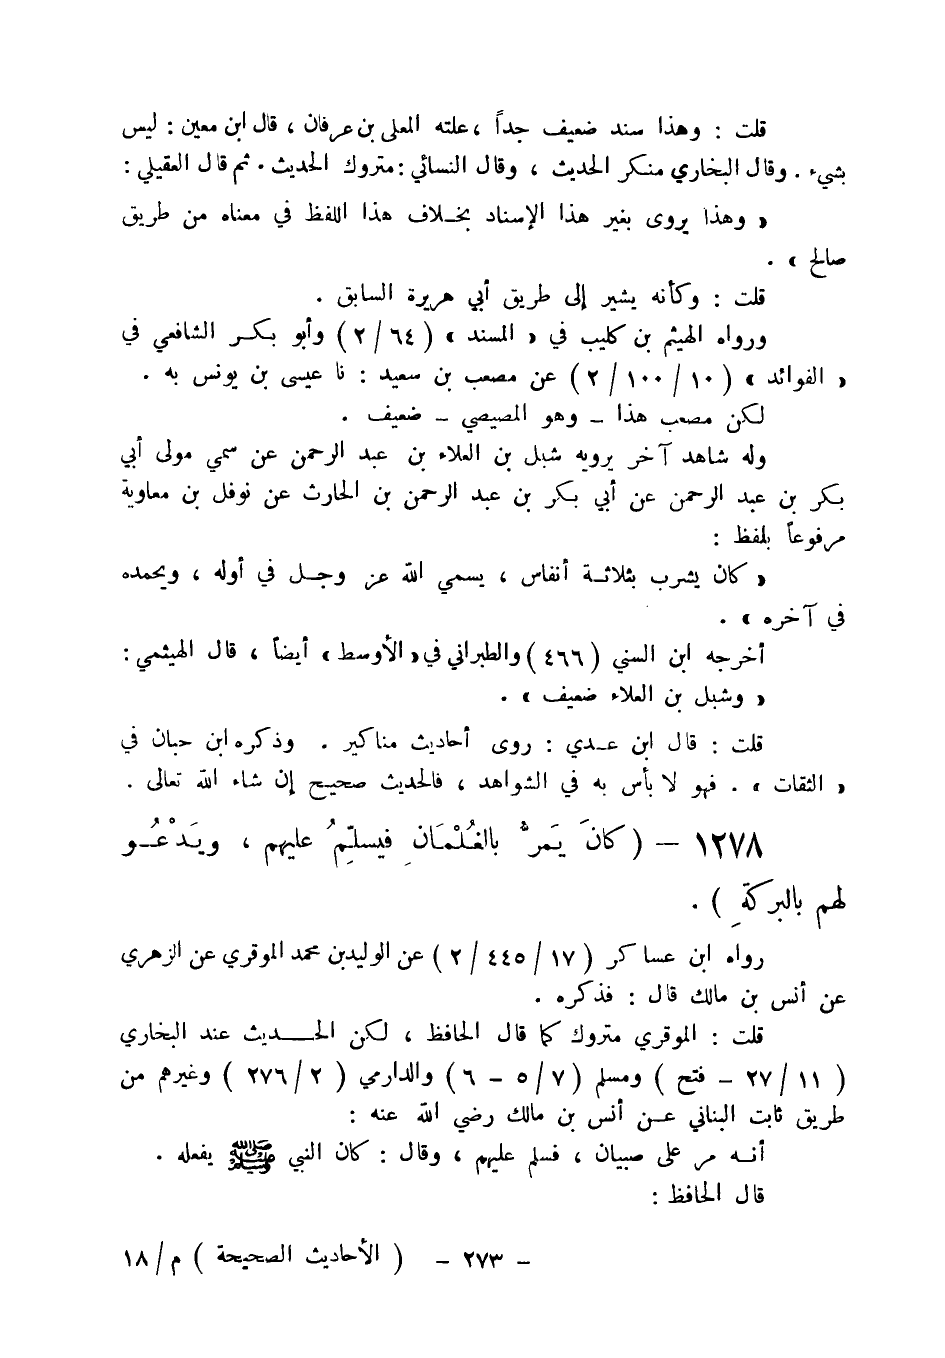 قلت : وهذا سند ضعيف جداً ، علته المعلى بن عرفان ، قال ابن معين : ليس
بشيء . وقال البخاري منكر الحديث ، وقال النسائي : متروك الحديث . ثم قال العقيلي :
« وهذا يروى بغير هذا الإسناد بخلاف هذا اللفظ في معناه من طريق
صالح » .
قلت : وكأنه يشير إلى طريق أبي هريرة السابق .
ورواه الهيثم بن كليب في « المسند » ( ٦٤ / ٢ ) وأبو بكر الشافعي في
« الفوائد » ( ١٠ / ١٠٠ / ٢ ) عن مصعب بن سعيد : نا عيسى بن يونس به .
لكن مصعب هذا – وهو المصيصي – ضعيف .
وله شاهد آخر يرويه شبل بن العلاء بن عبد الرحمن عن سمي مولى أبي
بكر بن عبد الرحمن عن أبي بكر بن عبد الرحمن بن الحارث عن نوفل بن معاوية
مرفوعاً بلفظ :
« كان يشرب بثلاثة أنفاس ، يسمي الله عز وجل في أوله ، ويحمده
في آخره » .
أخرجه ابن السني ( ٤٦٦ ) والطبراني في « الأوسط » أيضاً ، قال الهيثمي :
« وشبل بن العلاء ضعيف » .
قلت : قال ابن عدي : روى أحاديث مناكير . وذكره ابن حبان في
« الثقات » . فهو لا بأس به في الشواهد ، فالحديث صحيح إن شاء الله تعالى .
١٢٧٨ – ( كانَ يَمرُّ بالغُلْمَانِ فيسلّمُ عليهم ، ويَدْعُو
لهم بالبركةِ ) .
رواه ابن عساكر ( ١٧ / ٤٤٥ / ٢ ) عن الوليد بن محمد الموقري عن الزهري
عن أنس بن مالك قال : فذكره .
قلت : الموقري متروك كما قال الحافظ ، لكن الحديث عند البخاري
( ١١ / ٢٧ – فتح ) ومسلم ( ٧ / ٥ – ٦ ) والدارمي ( ٢ / ٢٧٦ ) وغيرهم من
طريق ثابت البناني عن أنس بن مالك رضي الله عنه :
أنه مر على صبيان ، فسلم عليهم ، وقال : كان النبي ﷺ يفعله .
قال الحافظ :
– ٢٧٣ – ( الأحاديث الصحيحة ) م / ١٨